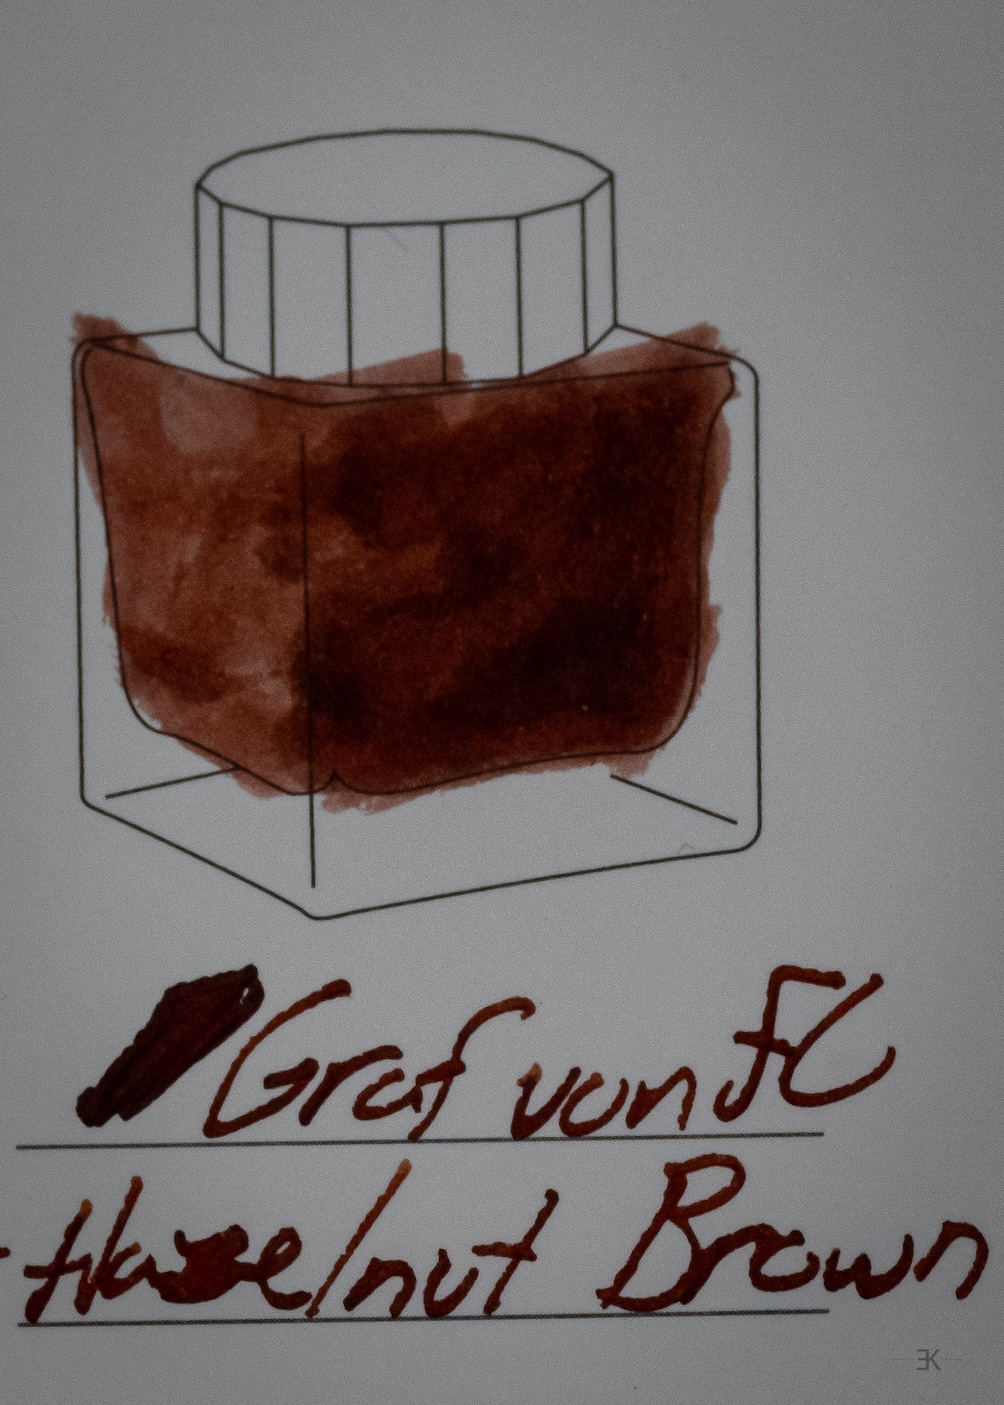 Graf von FC
Hazelnut Brown
EK